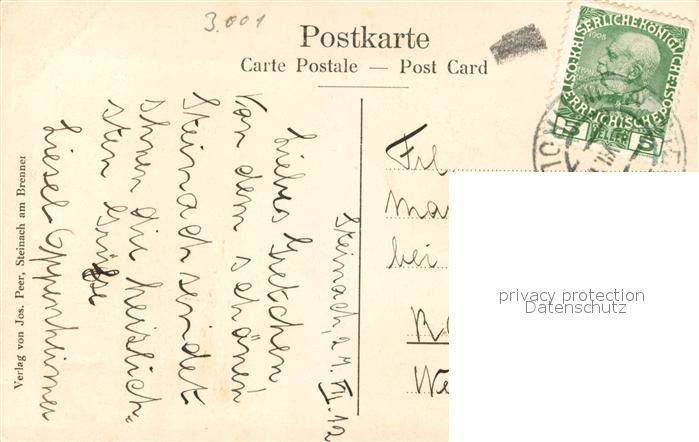 3.001
Postkarte
Carte Postale — Post Card
K.K. OESTERREICHISCHE POST
1908
5 HELLER 5
Verlag von Jos. Peer, Steinach am Brenner
Steinach, 27. VII. 12
Liebes Gretchen
Von dem schönen
Steinach sendet
Ihnen die herzlich-
sten Grüße
Liesel Oppenheimer
Frl
bei
We
privacy protection
Datenschutz